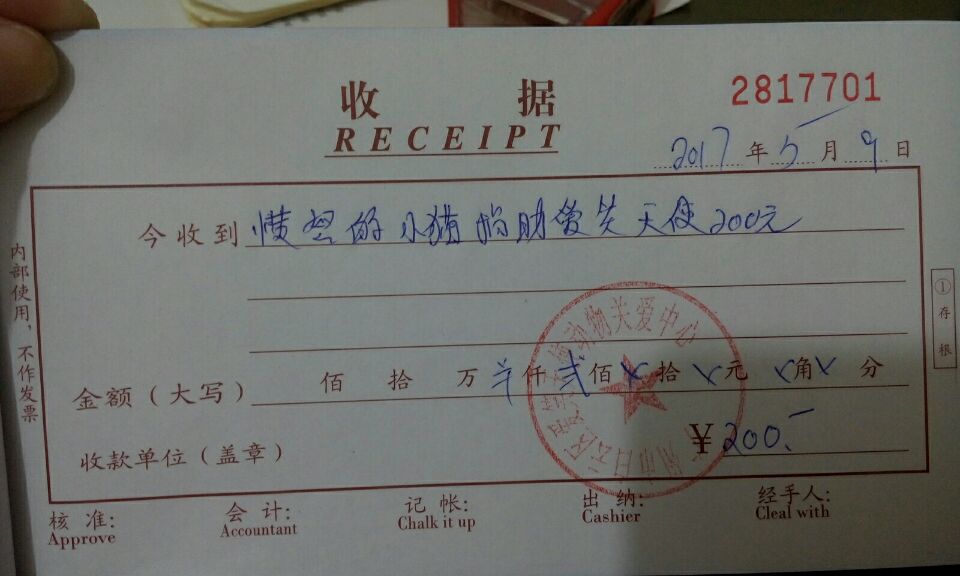 收 据
RECEIPT
2817701
2017年5月9日
今收到 愤怒的小猪捐助爱笑天使200元
金额（大写） 佰 拾 万 仟 贰 佰 拾 元 角 分
收款单位（盖章） ¥200.-
核 准: 会 计: 记 帐: 出 纳: 经手人:
Approve Accountant Chalk it up Cashier Cleal with
内部使用，不作发票
①存根
动物关爱中心
市白云区